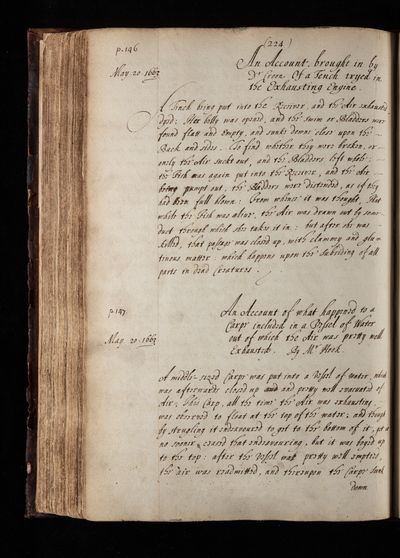 (224)
p.146
An Account, brought in by
May. 20. 1663
Dr. Croon. Of a Tench tryed in
the Exhausting Engine.
A Tench being put into the Receiver, and the Air exhausted
dyed: Her belly was opened, and the swim or Bladders were
found flatt and empty, and sunke down close upon the
Back and sides. To find whither they were broken, or
only the Air suckt out, and the Bladders left whole;
the Fish was again put into the Receiver, and the Air
being pumpt out, the Bladders were distended, as if they
had been full blown: From whence it was thought, That
while the Fish was alive, the Air was drawn out by some
duct through which she takes it in: but after she was
killed, that passage was closed up, with clammy and glu-
tinous matter: which happens upon the subsiding of all
parts in dead Creatures.
p.147
An Account of what happened to a
Carp included in a Vessel of Water
May. 20. 1663
out of which the Air was pretty well
Exhausted. By Mr. Hook.
A middle-sized Carp was put into a Vessel of water, which
was afterwards closed up and pretty well evacuated of
Air; This Carp, all the time the Air was exhausting,
was observed to float at the top of the water; and though
by strugling it endeavoured to get to the bottom of it, yet
no sooner ceased that endeavouring, but it was buoyed up
to the top: after the Vessel was pretty well emptied,
the air was readmitted, and thereupon the Carpe sunk
down